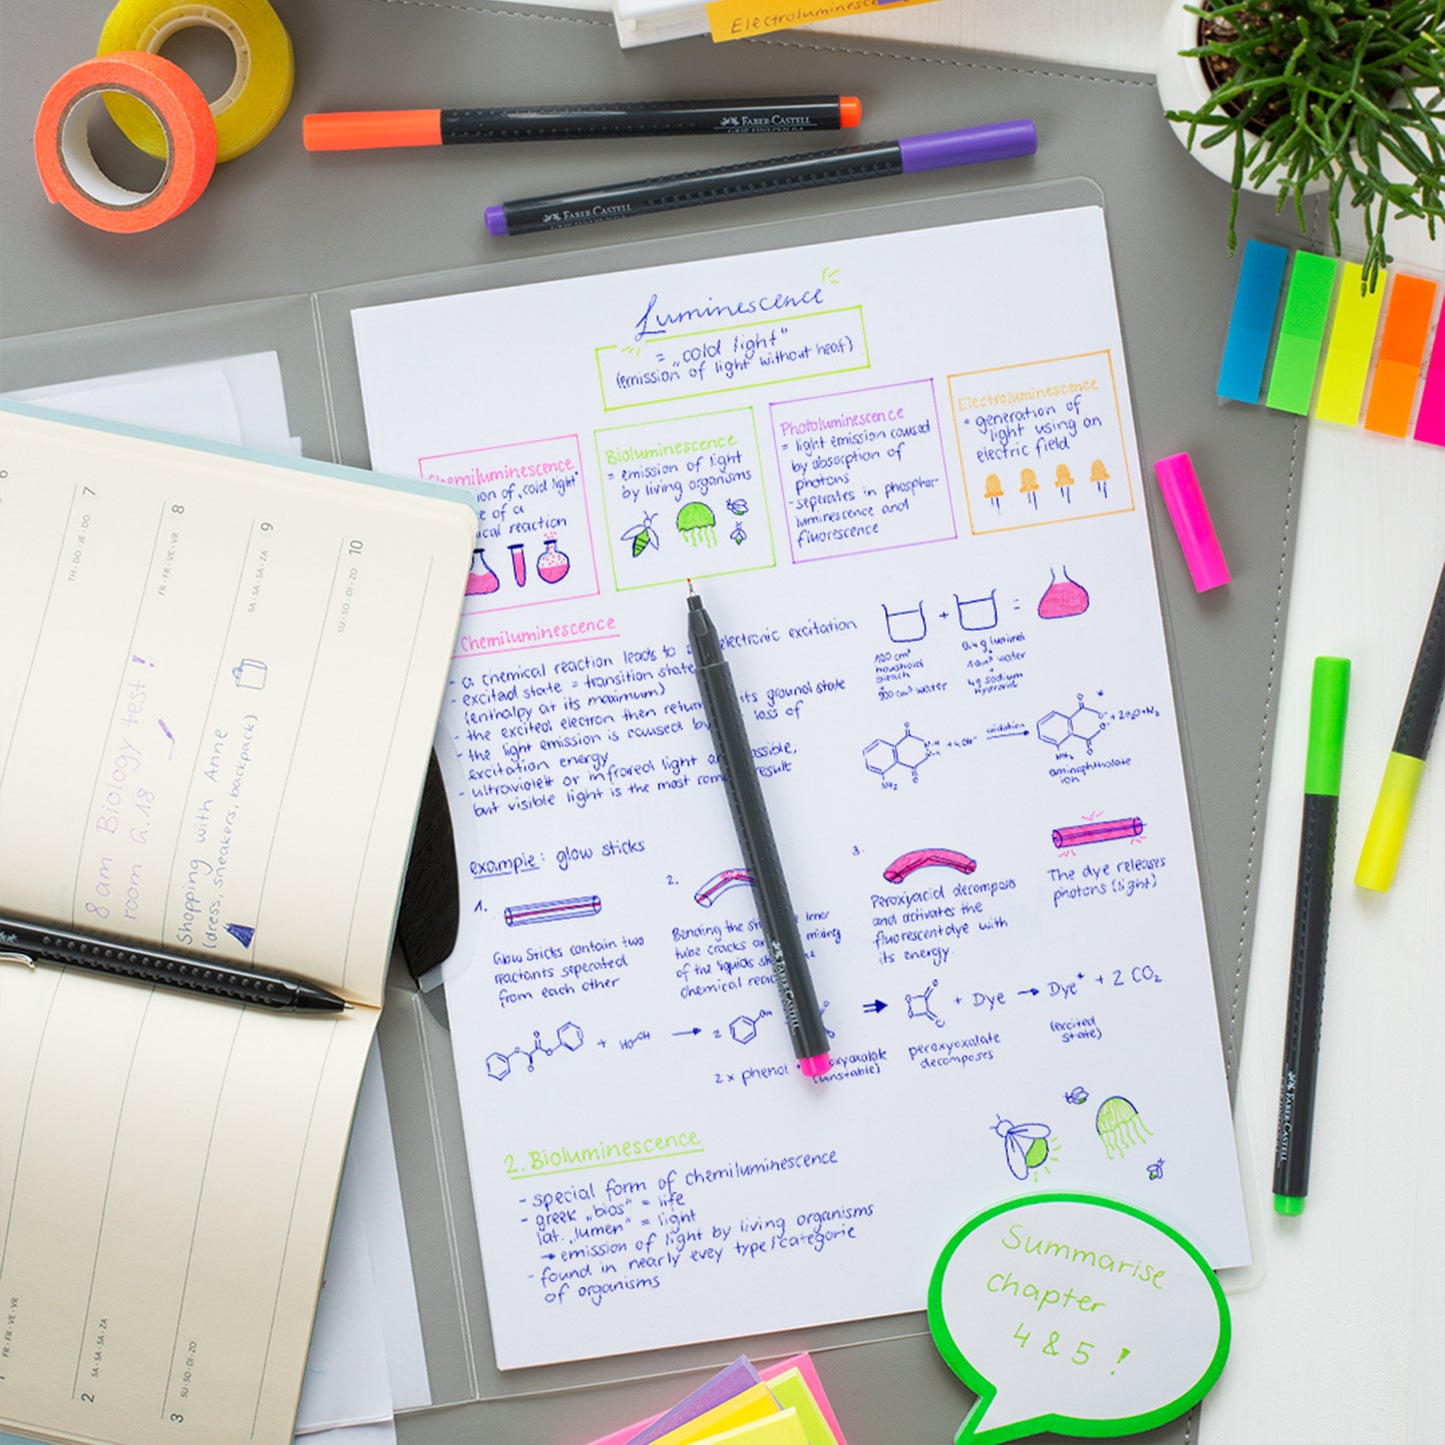 Electroluminesce
FABER-CASTELL
GRIP FINEPEN 0.4
FABER-CASTELL
Luminescence
= „cold light"
(emission of light without heat)
Chemiluminescence
ion of „cold light"
e of a
ical reaction
Bioluminescence
= emission of light
by living organisms
Photoluminescence
= light emission caused
by absorption of
photons
- seperates in phosphor-
luminescence and
fluorescence
Electroluminescence
= generation of
light using an
electric field
Chemiluminescence
- a chemical reaction leads to electronic excitation
- excited state = transition state
(enthalpy at its maximum)
- the excited electron then retur its ground state
- the light emission is caused by loss of
excitation energy
- ultraviolett or infrared light ar ssible,
but visible light is the most com result
+ =
100 cm³
household
bleach
+
900 cm³ water
0.4 g luminol
+
water
+
4 g sodium
+ 4 OH⁻ oxidation
NH₂
NH₂
aminophthalate
ion
example: glow sticks
1.
Glow Sticks contain two
reactants seperated
from each other
2.
Bending the st inner
tube cracks a mixing
of the liquids st e
chemical reac
3.
Peroxyacid decomposes
and activates the
fluorescent dye with
its energy.
The dye releases
photons (light)
+ HO OH → 2 OH
2 x phenol + oxyoxalate
(unstable)
+ Dye → Dye* + 2 CO₂
peroxyoxalate
decomposes
(excited
state)
2. Bioluminescence
- special form of chemiluminescence
- greek „bios" = life
lat. „lumen" = light
→ emission of light by living organisms
- found in nearly evey type/categorie
of organisms
Summarise
chapter
4 & 5 !
7
TH·DO·JE·DO
8
FR·FR·VE·VR
8 am Biology test!
room a.18
9
SA·SA·SA·ZA
Shopping with Anne
(dress, sneakers, backpack)
10
SU·SO·DI·ZO
1
FR·FR·VE·VR
2
SA·SA·SA·ZA
3
SU·SO·DI·ZO
FABER-CASTELL
FABER-CASTELL